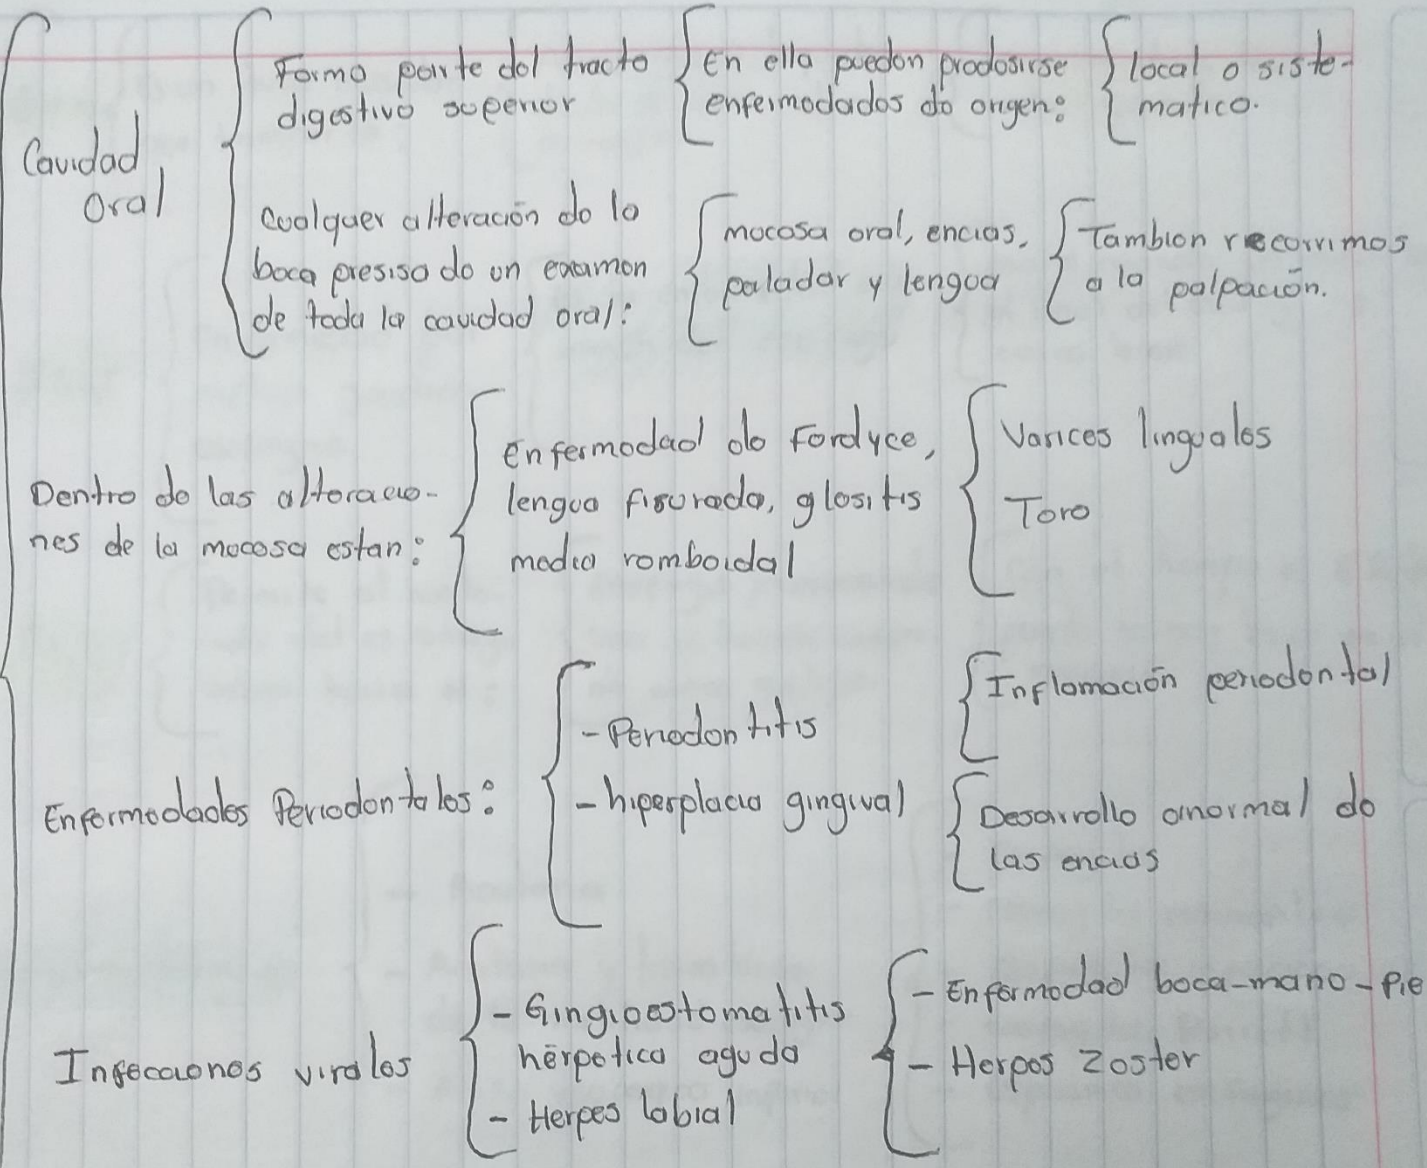 Cavidad
Oral
Forma parte del tracto
digestivo superior
En ella pueden prodosirse
enfermedades de origen:
local o siste-
matico.
Cualquer alteración de la
boca presisa de un examen
de toda la cavidad oral:
mucosa oral, encias,
paladar y lengua
Tambien recorrimos
a la palpación.
Dentro de las alteracio-
nes de la mucosa estan:
Enfermedad de Fordyce,
lengua fisurada, glositis
media romboidal
Varices linguales
Toro
Enfermedades Periodontales:
- Periodontitis
- hiperplacia gingival
Inflamación periodontal
Desarrollo anormal de
las encias
Infecciones virales
- Gingioestomatitis
hérpetica aguda
- Herpes labial
- Enfermedad boca-mano-pie
- Herpes Zoster